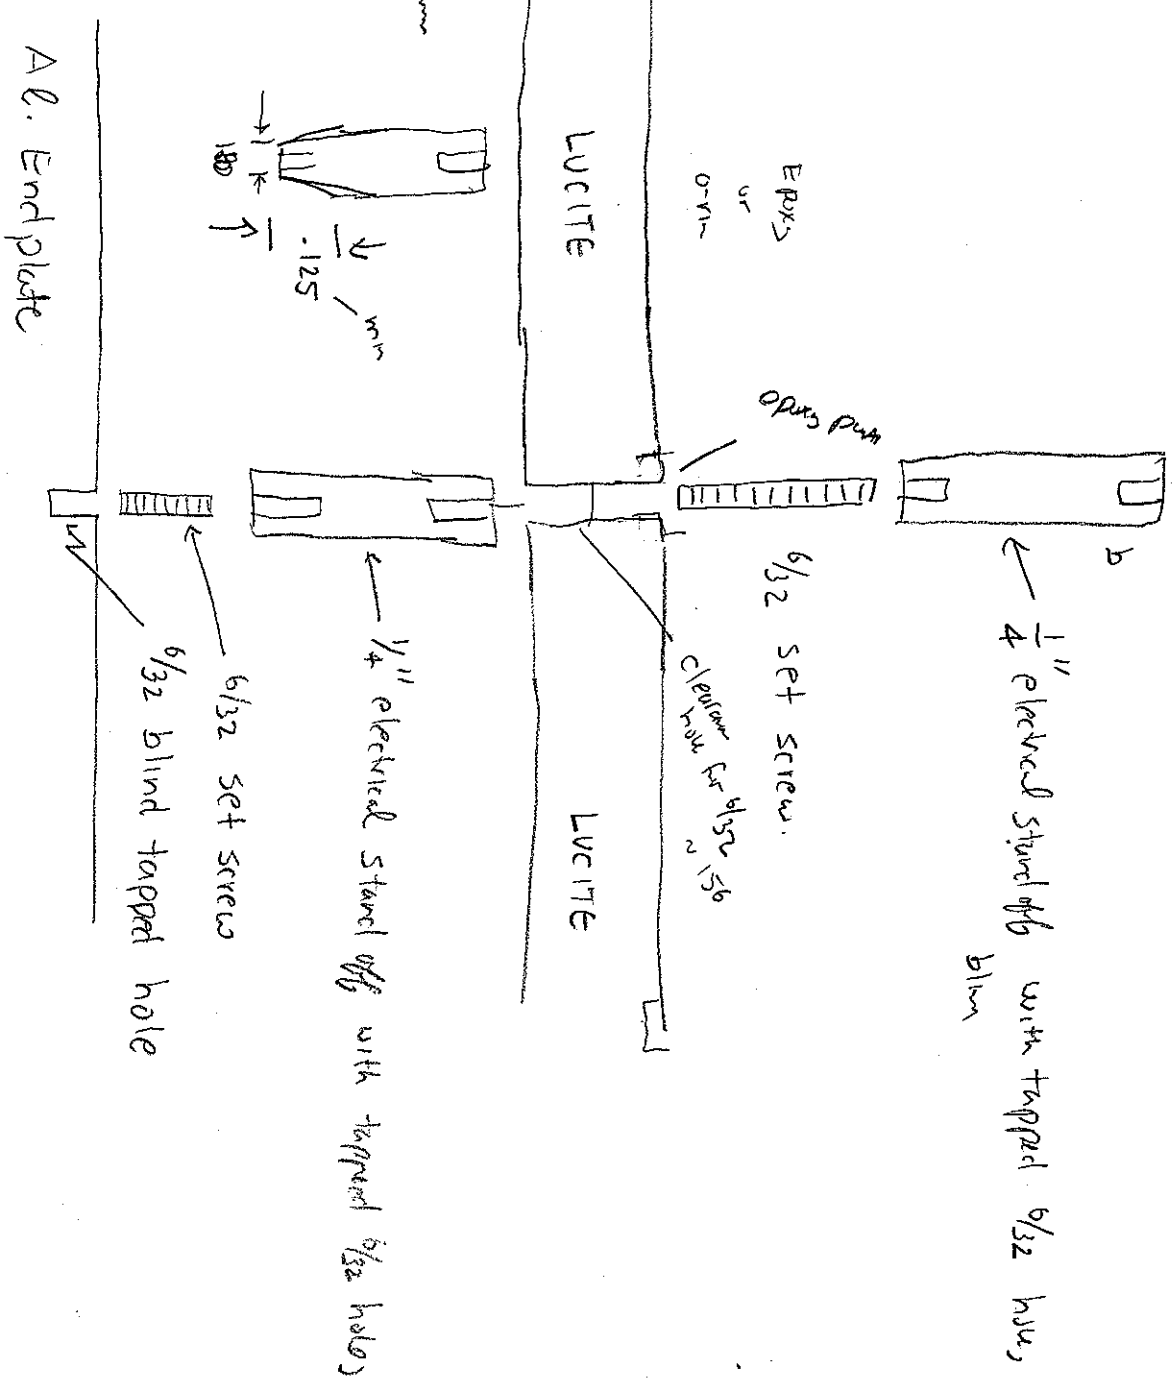 b
1/4" electrical standoff with tapped 6/32 hole,
blin
6/32 set screw.
Epoxy
or
o-rin
clearan
hole for 6/32
~ 156
LUCITE
LUCITE
1/4" electrical standoff with tapped 6/32 holes
min
.125
180
6/32 set screw
6/32 blind tapped hole
Al. Endplate